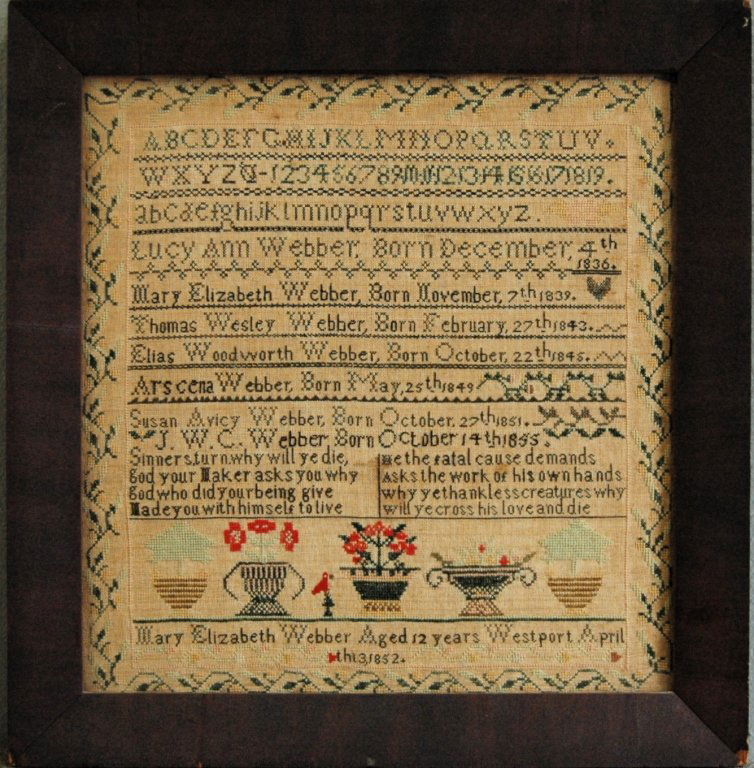 ABCDEFGHIJKLMNOPQRSTUV.
WXYZ&-12345678910111213141516171819.
abcdefghijklmnopqrstuvwxyz.
Lucy Ann Webber, Born December, 4th 1836.
Mary Elizabeth Webber, Born November, 7th 1839.
Thomas Wesley Webber, Born February, 27th 1843.
Elias Woodworth Webber, Born October, 22th 1845.
Arscena Webber, Born May, 25th 1849
Susan Avicy Webber, Born October, 27th 1851.
J. W. C. Webber, Born October 14th 1855.
Sinners, turn, why will ye die,
God your Maker asks you why
God who did your being give
Made you with himself to live
He the fatal cause demands
Asks the work of his own hands
why ye thankless creatures why
will ye cross his love and die
Mary Elizabeth Webber Aged 12 years Westport April
th13, 1852.